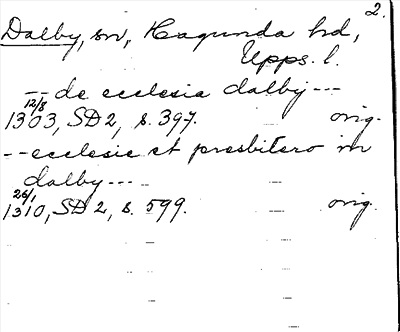 2.
Dalby, sn, Hagunda hd,
Upps. l.
-- de ecclesia dalby ---
12/8
1303, SD 2, s. 397. orig.
-- ecclesie et presbitero in
dalby ---
26/1
1310, SD 2, s. 599. orig.